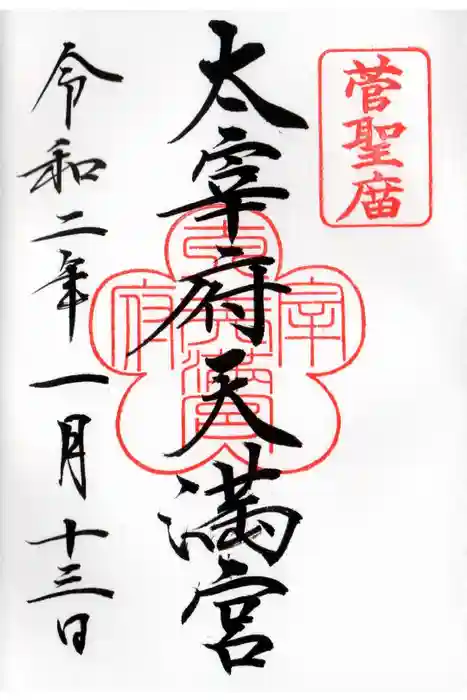 菅聖庿
太宰府天満宮
令和二年一月十三日